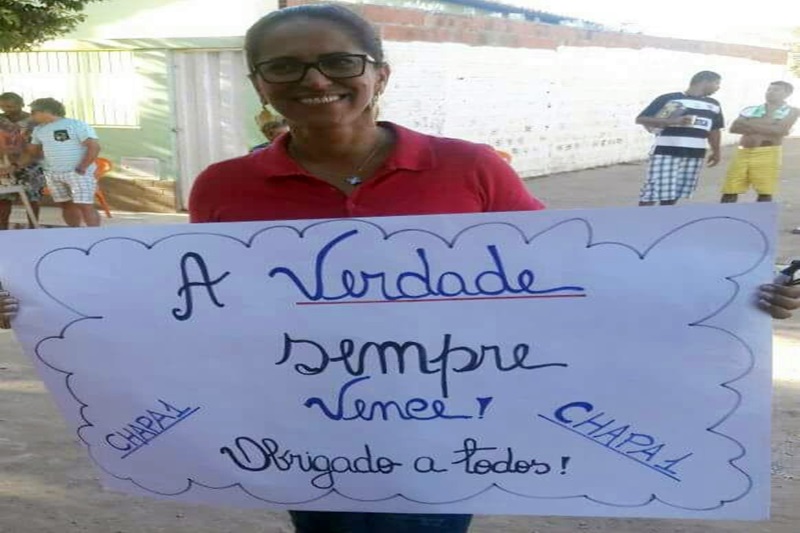 A Verdade
sempre
Vence!
CHAPA1
CHAPA1
Obrigado a todos!